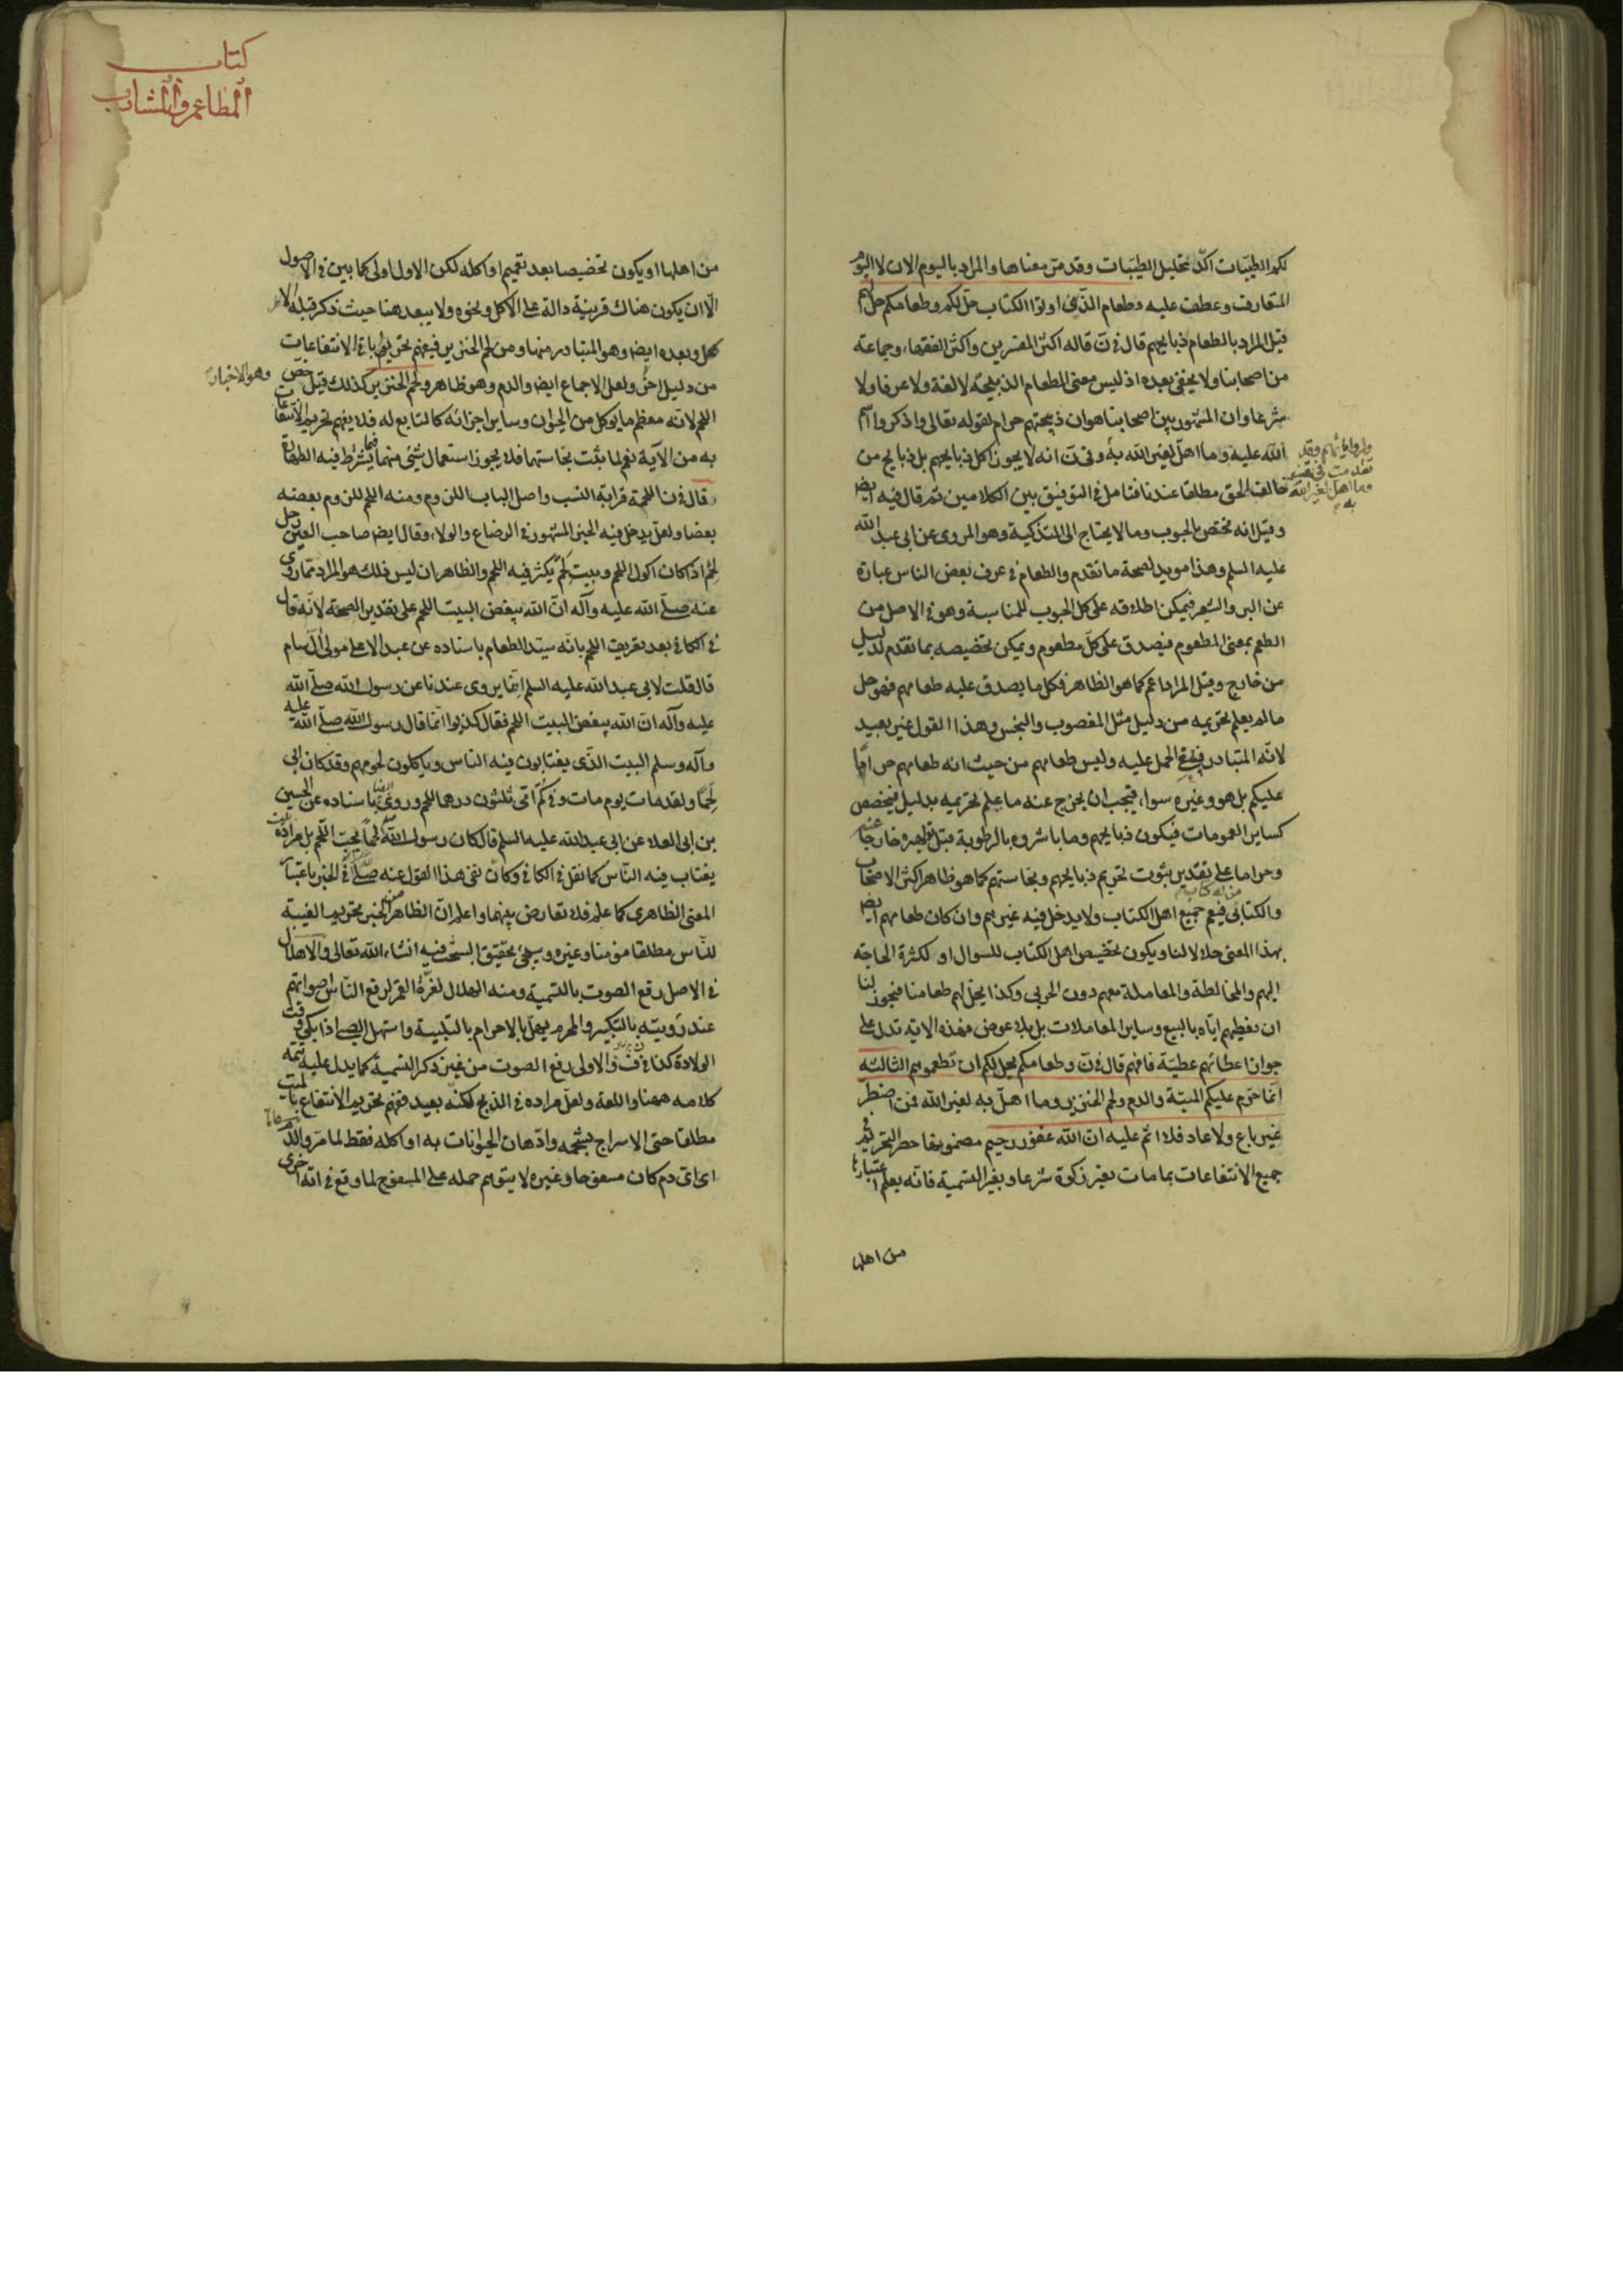 لكم الطيبات اكد تحليل الطيبات وقد مر معناها والمراد باليوم الان لا اليوم
المتعارف وعطف عليه وطعام الذين اوتوا الكتاب حل لكم وطعامكم حل لهم
قيل المراد بالطعام ذبايحهم قال في ن قاله اكثر المفسرين واكثر الفقهاء وجماعة
من اصحابنا ولا يخفى بعده اذ ليس معنى الطعام الذبيحة لا لغة ولا عرفا ولا
شرعا وان المشهور بين اصحابنا هو ان ذبيحتهم حرام لقوله تعالى واذكروا اسم
الله عليه وما اهل لغير الله به وفي ن انه لا يجوز اكل ذبايحهم بل ذبايح من
خالف الحق مطلقا عندنا فتامل في التوفيق بين الكلامين ثم قال فيه ايضا
وقيل انه مختص بالحبوب وما لا يحتاج الى التذكية وهو المروى عن ابى عبد الله
عليه السلم وهذا مويد لصحة ما تقدم والطعام في عرف بعض الناس عبارة
عن البر والشعير فيمكن اطلاقه على كل الحبوب للمناسبة وهو في الاصل من
الطعم بمعنى المطعوم فيصدق على كل مطعوم ويمكن تخصيصه بما تقدم لدليل
من خارج وقيل المراد اعم كما هو الظاهر فكل ما يصدق عليه طعامهم فهو حل
ما لم يعلم تحريمه من دليل مثل المغصوب والنجس وهذا القول غير بعيد
لانه المتبادر فينبغي الحمل عليه وليس طعامهم من حيث انه طعامهم حراما
عليكم بل هو وغيره سواء فيجب ان يخرج عنه ما علم تحريمه بدليل فيخصص
كساير العمومات فيكون ذبايحهم وما باشروه بالرطوبة قبل تطهيره خارجا عنه
وحراما على تقدير ثبوت تحريم ذبايحهم ونجاستهم كما هو ظاهر اكثر الاصحاب
والكتابى فيعم جميع اهل الكتاب ولا يدخل فيه غيرهم وان كان طعامهم ايضا
بهذا المعنى حلالا لنا ويكون تخصيص اهل الكتاب للسوال او لكثرة الحاجة
اليهم والمخالطة والمعاملة معهم دون الحربى وكذا يحل لهم طعامنا فيجوز لنا
ان نعطيهم اياه بالبيع وساير المعاملات بل بلا عوض فهذه الاية تدل على
جواز اعطائهم عطية فافهم قال في ن وطعامكم يحل لكم ان تطعموهم الثالثة
انما حرم عليكم الميتة والدم ولحم الخنزير وما اهل به لغير الله فمن اضطر
غير باغ ولا عاد فلا اثم عليه ان الله غفور رحيم مضمونها حصر التحريم في
جميع الانتفاعات بما مات بغير ذكوة شرعا وبغير التسمية فانه يعلم اعتبارها
من اهلها
تقدمت في تفسير
وما اهل لغير الله
به
كتاب
المطاعم والمشارب
من اهلها او يكون تخصيصا بعد تعميم او اكله لكن الاول اولى كما بين في الاصول
الا ان يكون هناك قرينة دالة على الاكل ونحوه ولا يبعد هنا حيث ذكر قبله الامر
كل وبعده ايضا وهو المتبادر منها ومن لحم الخنزير فيفهم تحريم باقى الانتفاعات
من دليل اخر ولعل الاجماع ايضا والدم وهو ظاهر ولحم الخنزير كذلك قيل خص
اللحم لانه معظم ما يوكل من الحيوان وساير اجزائه كالتابع له فلا يفهم تحريم الانتفاعات
به من الآية نعم لما ثبت نجاستهما فلا يجوز استعمال شئ منهما فيما يشترط فيه الطهارة
قال في ن اللحمة قرابة النسب واصل الباب اللزوم ومنه اللحم للزوم بعضه
بعضا ولعل يدخل فيه الخبر المشهور في الرضاع والولاء وقال ايضا صاحب العين رجل
لحم اذا كان اكول اللحم وبيت لحم يكثر فيه اللحم والظاهر ان ليس ذلك هو المراد مما روى
عنه صلى الله عليه وآله ان الله يبغض البيت اللحم على تقدير الصحة لانه قال
في الكافى بعد تعريف اللحم بانه سيد الطعام باسناده عن عبد الاعلى مولى آل سام
قال قلت لابى عبد الله عليه السلم انما يروى عندنا عن رسول الله صلى الله
عليه وآله ان الله يبغض البيت اللحم فقال كذبوا انما قال رسول الله صلى الله عليه
وآله وسلم البيت الذى يغتابون فيه الناس وياكلون لحومهم وقد كان ابى
لحما ولقد مات يوم مات وفي كم اتى ثلثون درهما للحم وروى ايضا باسناده عن الحسين
بن ابى العلاء عن ابى عبد الله عليه السلم قال كان رسول الله لحما يحب اللحم بل مراده بيت
يغتاب فيه الناس كما نقل في الكافى وكان نفى هذا القول عنه صلى الله في الخبر باعتبار
المعنى الظاهرى كما علم فلا تعارض بينهما واعلم ان الظاهر من الخبر تحريم الغيبة
للناس مطلقا مومنا وغيره وسيجئ تحقيق البحث فيه انشاء الله تعالى والاهلال
في الاصل رفع الصوت بالتسمية ومنه الهلال لغرة القمر لرفع الناس اصواتهم
عند رويته بالتكبير والمحرم يهل بالاحرام بالتلبية واستهل الصبى اذا بكى وقت
الولادة كذا في ن والاولى رفع الصوت من غير ذكر التسمية كما يدل عليه تتمة
كلامه ههنا واللغة ولعل مراده في الذبح لكنه بعيد ففهم تحريم الانتفاع بالميت
مطلقا حتى الاسراج بشحمه وادهان الحيوانات به او اكله فقط لما مر والدم
اى اى دم كان مسفوحا وغيره لا يتوهم حمله على المسفوح لما وقع في آية اخرى